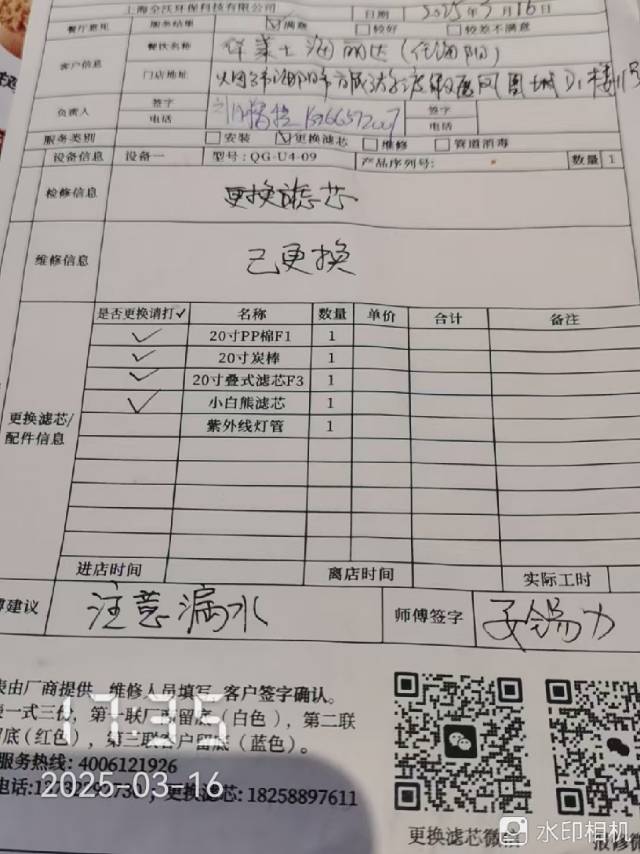 上海全沃环保科技有限公司 日期 2025年3月16日
餐厅意见 服务结果 满意 较好 较差不满意
客户信息 餐饮名称
门店地址
负责人 签字 电话 签字 电话
服务类别 安装 更换滤芯 维修 管道消毒
设备信息 设备一 型号：QG-U4-09 产品序列号： 数量 1
检修信息 更换滤芯
维修信息 已更换
更换滤芯/配件信息
是否更换请打✓ 名称 数量 单价 合计 备注
✓ 20寸PP棉F1 1
✓ 20寸炭棒 1
✓ 20寸叠式滤芯F3 1
✓ 小白熊滤芯 1
紫外线灯管 1
进店时间 离店时间 实际工时
建议 注意漏水 师傅签字
由厂商提供、维修人员填写、客户签字确认。
一式三份，第一联厂商留底（白色），第二联
留底（红色），第三联客户留底（蓝色）。
服务热线：4006121926
电话： 更换滤芯：18258897611
17:35
2025-03-16
更换滤芯微信
报修微
水印相机